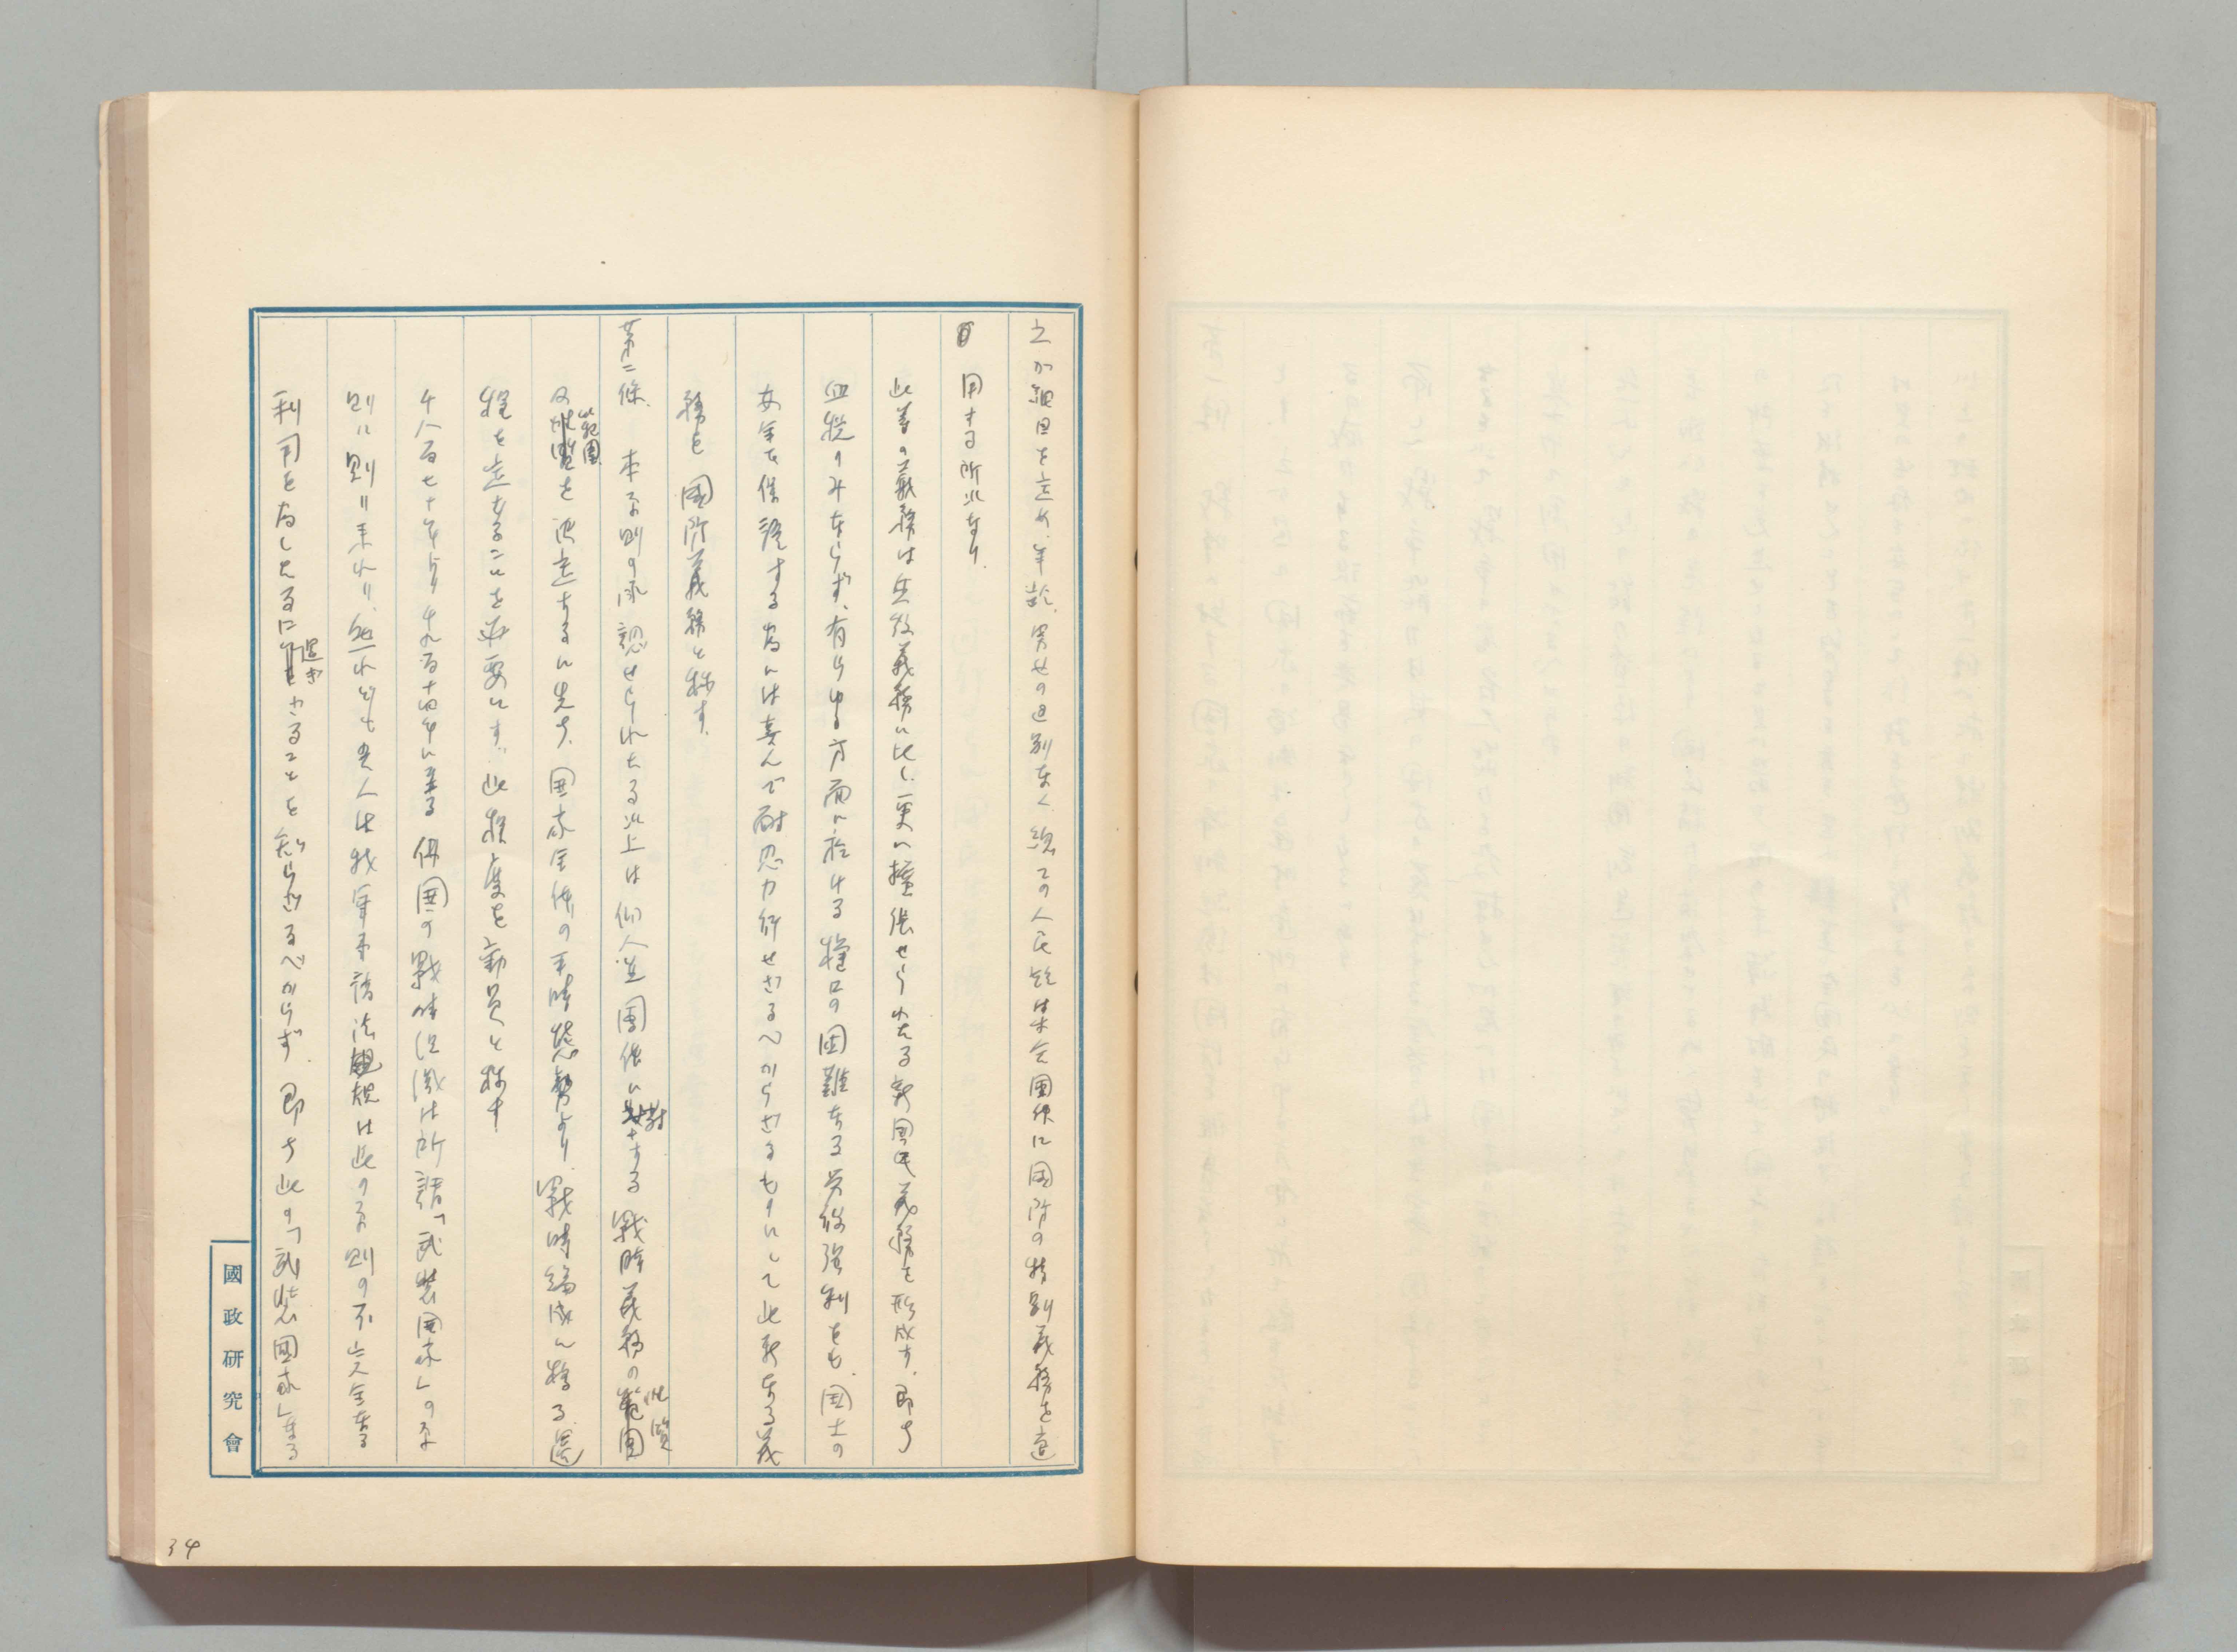 之か細目を定め、年齢、男女の区別なく総ての人民竝集会団体に国防の特別義務を適
用する所以なり、
此等の義務は兵役義務に比し、更に擴張せられたる新国民義務を形成す、即ち
血税のみならず、有らゆる方面に於ける糧口の困難なる労役強制をも、国土の
安全を保護する為には喜んで耐忍力行せさるへからさるものにして此新なる義
務を国防義務と称す、
第二條、本原則の承認せられたる以上は個人並団体に対する戦時義務の範囲
及範囲を決定するに先ち、国家全体の平時態勢より、戦時編成に移る過
程を定むることを必要とす、此程度を動員と称す
千八百七十年より千九百十四年に至る仏国の戦時組織は所謂「武装国家」の原
則に則り来れり、然れども吾人は我軍事諸法規は此の原則の不完全なる
利用をなしたるに過ぎさることを知らざるべからず、即ち此の「武装国家」なる
國政研究會
34